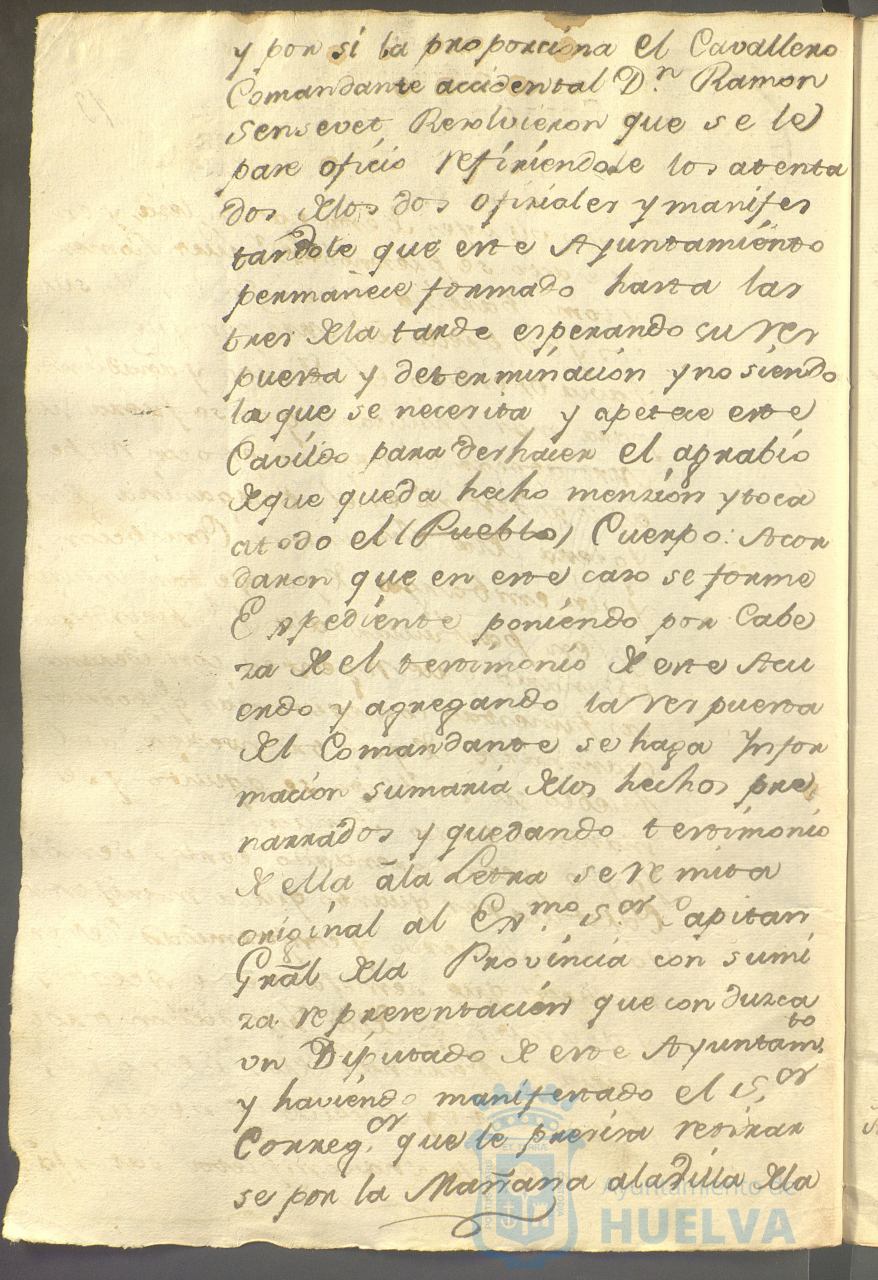 y por si la proporciona el Cavallero
Comandante accidental D.n Ramon
Sensevet Resolvieron que se le
pase oficio refiriendole los atenta
dos de los dos oficiales y manifes
tandole que este Ayuntamiento
permanece formado hasta las
tres de la tarde esperando su res
puesta y determinación y no siendo
la que se necesita y apetece este
Cavildo para deshacer el agrabio
de que queda hecho menzión y toca
a todo el (Pueblo) Cuerpo: Acor
daron que en este caso se forme
Expediente poniendo por Cabe
za de el testimonio de este Acu
erdo y agregando la respuesta
del Comandante se haga Ynfor
mación sumaria de los hechos pre
narrados y quedando testimonio
de ella a la Letra se remita
original al Ex.mo S.or Capitan
Gral de la Provincia con sumi
za representación que conduzca
un Diputado de este Ayuntam.to
y haviendo manifestado el S.or
Correg.or que le precisa retirar
se por la Mañana a la Villa de la
Ayuntamiento de
HUELVA